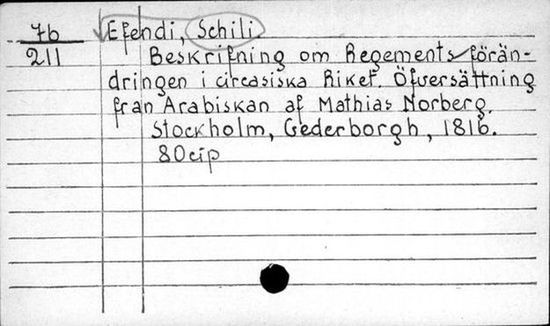 76 Efendi, Schili
211 Beskrifning om Regements förän-
dringen i circasiska Riket. Öfversättning
från Arabiskan af Mathias Norberg.
Stockholm, Cederborgh, 1816.
80cip